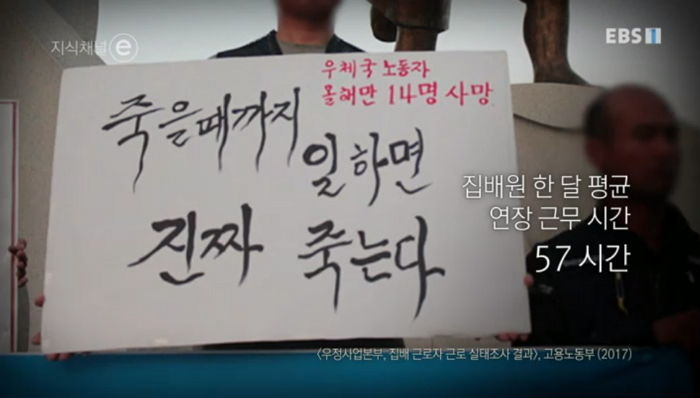 지식채널 e
EBS 1
우체국 노동자
올해만 14명 사망
죽을때까지
일하면
진짜 죽는다
집배원 한 달 평균
연장 근무 시간
57 시간
<우정사업본부, 집배 근로자 근로 실태조사 결과>, 고용노동부 (2017)